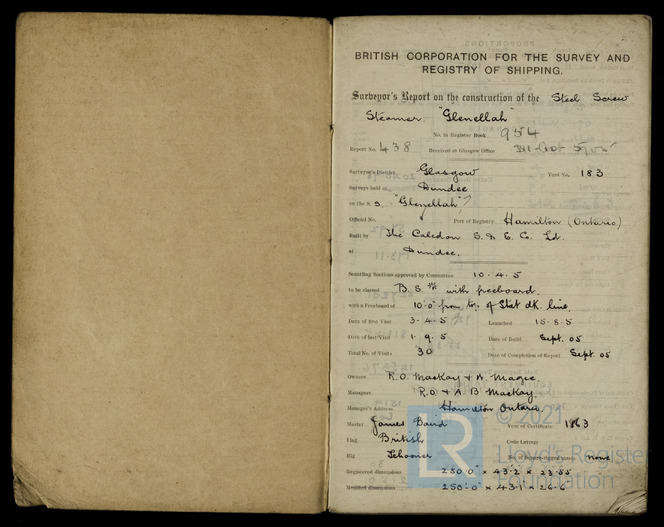 BRITISH CORPORATION FOR THE SURVEY AND
REGISTRY OF SHIPPING.
Surveyor's Report on the construction of the Steel Screw
Steamer "Glenellah"
No. in Register Book 954
Report No. 438 Received at Glasgow Office
Surveyor's District Glasgow Yard No. 183
Surveys held at Dundee
on the S. S. "Glenellah"
Official No. Port of Registry Hamilton (Ontario)
Built by The Caledon S. & E. Co. Ld.
at Dundee.
Scantling Sections approved by Committee 10.4.5
to be classed B. S. with freeboard.
with a Freeboard of 10'.0" from top of Stat dk. line.
Date of first Visit 3.4.5 Launched 15.8.5
Date of last Visit 1.9.5 Date of Build Sept. 05
Total No. of Visits 30 Date of Completion of Report Sept. 05
Owners R.O. Mackay & A. Magee.
Managers R.O. & A.B. Mackay
Manager's Address Hamilton Ontario.
Master James Baird Year of Certificate 1863
Flag British Code Letters
Rig Schooner none
Registered dimensions 250'.0" × 43'.2" × 23.55
Moulded dimensions 250'.0" × 43.1 × 26.6
© 2021
LR
Lloyd's Register
Foundation